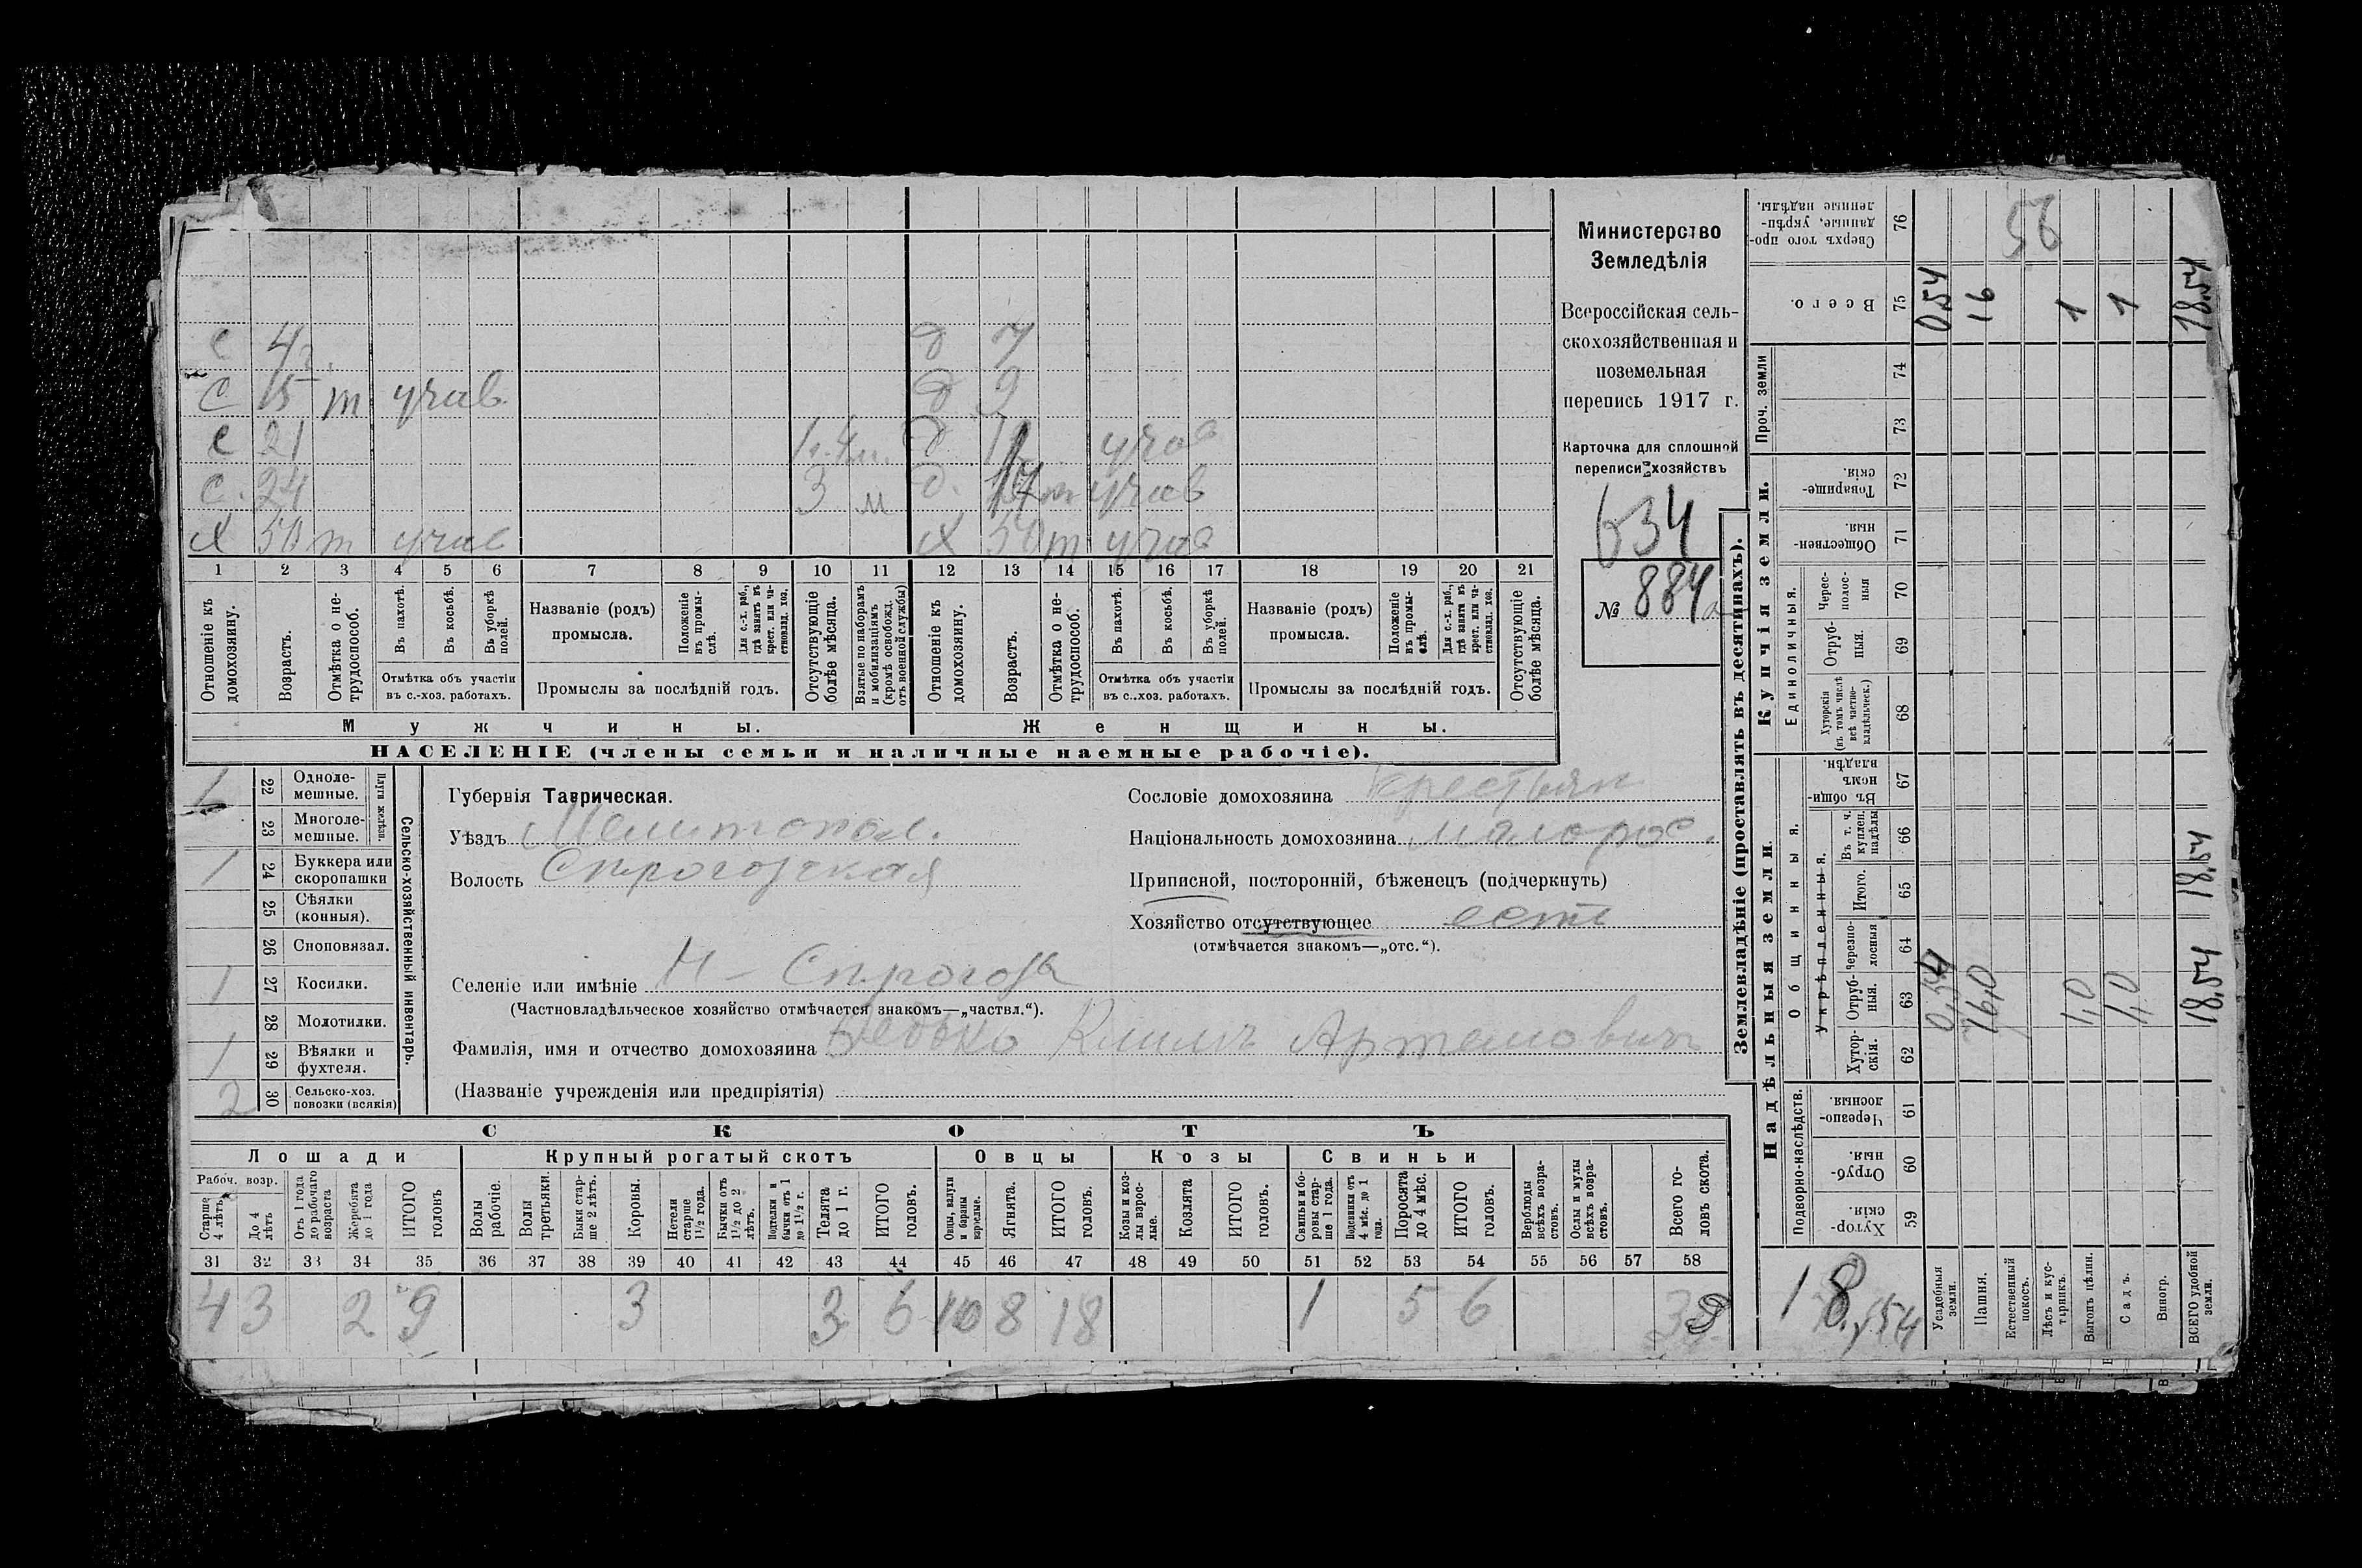 Министерство
Земледѣлія
Всероссійская сель-
скохозяйственная и
поземельная
перепись 1917 г.
Карточка для сплошной
переписи хозяйствъ
634
№ 884
56
с 4 г. д 7
с 15 т учав д 9
с 21 д учав
с. 24 3 м д. 17 т учав
х 50 т учав х 50 т учав
1 2 3 4 5 6 7 8 9 10 11 12 13 14 15 16 17 18 19 20 21
Отношеніе къ домохозяину.
Возрастъ.
Отмѣтка о не-трудоспособ.
Въ пахотѣ.
Въ косьбѣ.
Въ уборкѣ полей.
Отмѣтка объ участіи въ с.-хоз. работахъ.
Названіе (родъ) промысла.
Положеніе въ промы-слѣ.
Для с.-х. раб., гдѣ занятъ въ крест. или ча-стновлад. хоз.
Промыслы за послѣдній годъ.
Отсутствующіе болѣе мѣсяца.
Взятые по наборамъ и мобилизаціямъ (кромѣ освобожд. отъ военной службы)
Отношеніе къ домохозяину.
Возрастъ.
Отмѣтка о не-трудоспособ.
Въ пахотѣ.
Въ косьбѣ.
Въ уборкѣ полей.
Отмѣтка объ участіи въ с.-хоз. работахъ.
Названіе (родъ) промысла.
Положеніе въ промы-слѣ.
Для с.-х. раб., гдѣ занята въ крест. или ча-стновлад. хоз.
Промыслы за послѣдній годъ.
Отсутствующіе болѣе мѣсяца.
Мужчины. Женщины.
НАСЕЛЕНІЕ (члены семьи и наличные наемные рабочіе).
Сельско-хозяйственный инвентарь.
Плуги желѣзн.
1 22 Одноле-мешные.
23 Многоле-мешные.
1 24 Буккера или скоропашки
25 Сѣялки (конныя).
26 Сноповязал.
1 27 Косилки.
28 Молотилки.
1 29 Вѣялки и фухтеля.
2 30 Сельско-хоз. повозки (всякія)
Губернія Таврическая.
Уѣздъ Мелитопол.
Волость
Селеніе или имѣніе
(Частновладѣльческое хозяйство отмѣчается знакомъ—„частвл.“).
Фамилія, имя и отчество домохозяина Климъ Артемовичъ
(Названіе учрежденія или предпріятія)
Сословіе домохозяина крестьян
Національность домохозяина малорос.
Приписной, посторонній, бѣженецъ (подчеркнуть)
Хозяйство отсутствующее есть
(отмѣчается знакомъ—„отс.“).
СКОТЪ
Лошади Крупный рогатый скотъ Овцы Козы Свиньи
Рабоч. возр.
Старше 4 лѣтъ
До 4 лѣтъ
Отъ 1 года до рабочаго возраста
Жеребята до 1 года
ИТОГО головъ
Волы рабочіе.
Волы третьяки.
Быки стар-ше 2 лѣтъ.
Коровы.
Нетели старше 1½ года.
Бычки отъ 1½ до 2 лѣтъ.
Подтелки и бычки отъ 1 до 1½ г.
Телята до 1 г.
ИТОГО головъ.
Овцы, валухи и бараны взрослые.
Ягнята.
ИТОГО головъ.
Козы и коз-лы взрос-лые.
Козлята
ИТОГО головъ.
Свиньи и бо-ровы стар-ше 1 года.
Подсвинки отъ 4 мѣс. до 1 года.
Поросята до 4 мѣс.
ИТОГО головъ.
Верблюды всѣхъ возра-стовъ.
Ослы и мулы всѣхъ возра-стовъ.
Всего го-ловъ скота.
31 32 33 34 35 36 37 38 39 40 41 42 43 44 45 46 47 48 49 50 51 52 53 54 55 56 57 58
4 3 2 9 3 3 6 10 8 18 1 5 6 39
Землевладѣніе (проставлять въ десятинахъ).
Надѣльныя земли. Купчія земли. Проч. земли
Подворно-наслѣдств. Общинныя. Единоличныя.
Укрѣпленныя.
Хутор-скія. 59
Отруб-ныя. 60
Черезпо-лосныя 61
Хутор-скія. 62
Отруб-ныя. 63
Черезпо-лосныя 64
Итого. 65
Въ т. ч. куплен. надѣлы 66
Въ общин-номъ владѣн. 67
Хуторскія (въ томъ числѣ всѣ частно-владѣльческ.) 68
Отруб-ныя. 69
Черес-полос-ныя 70
Обществен-ныя. 71
Товарище-скія. 72
73
74
Всего. 75
Сверхъ того про-данные, укрѣп-ленные надѣлы. 76
18,54
Усадебныя земли. 0,54 0,54
Пашня. 16,0 16
Естественный покосъ.
Лѣсъ и кус-тарникъ.
Выгонъ цѣлин. 1,0 1
Садъ. 1,0 1
Виногр.
ВСЕГО удобной земли. 18,54 18,54 18,54